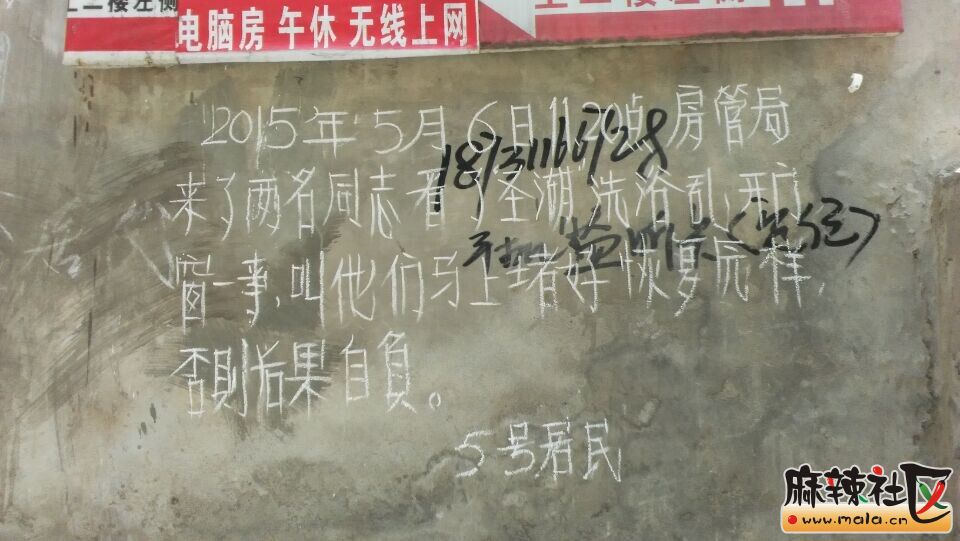 上二楼左侧
电脑房 午休 无线上网
上二楼左侧
2015年5月6日11:20点房管局
来了两名同志看了圣湖洗浴乱开门
窗一事,叫他们马上堵好恢复完样,
否则后果自负。
5号居民
麻辣社区
www.mala.cn